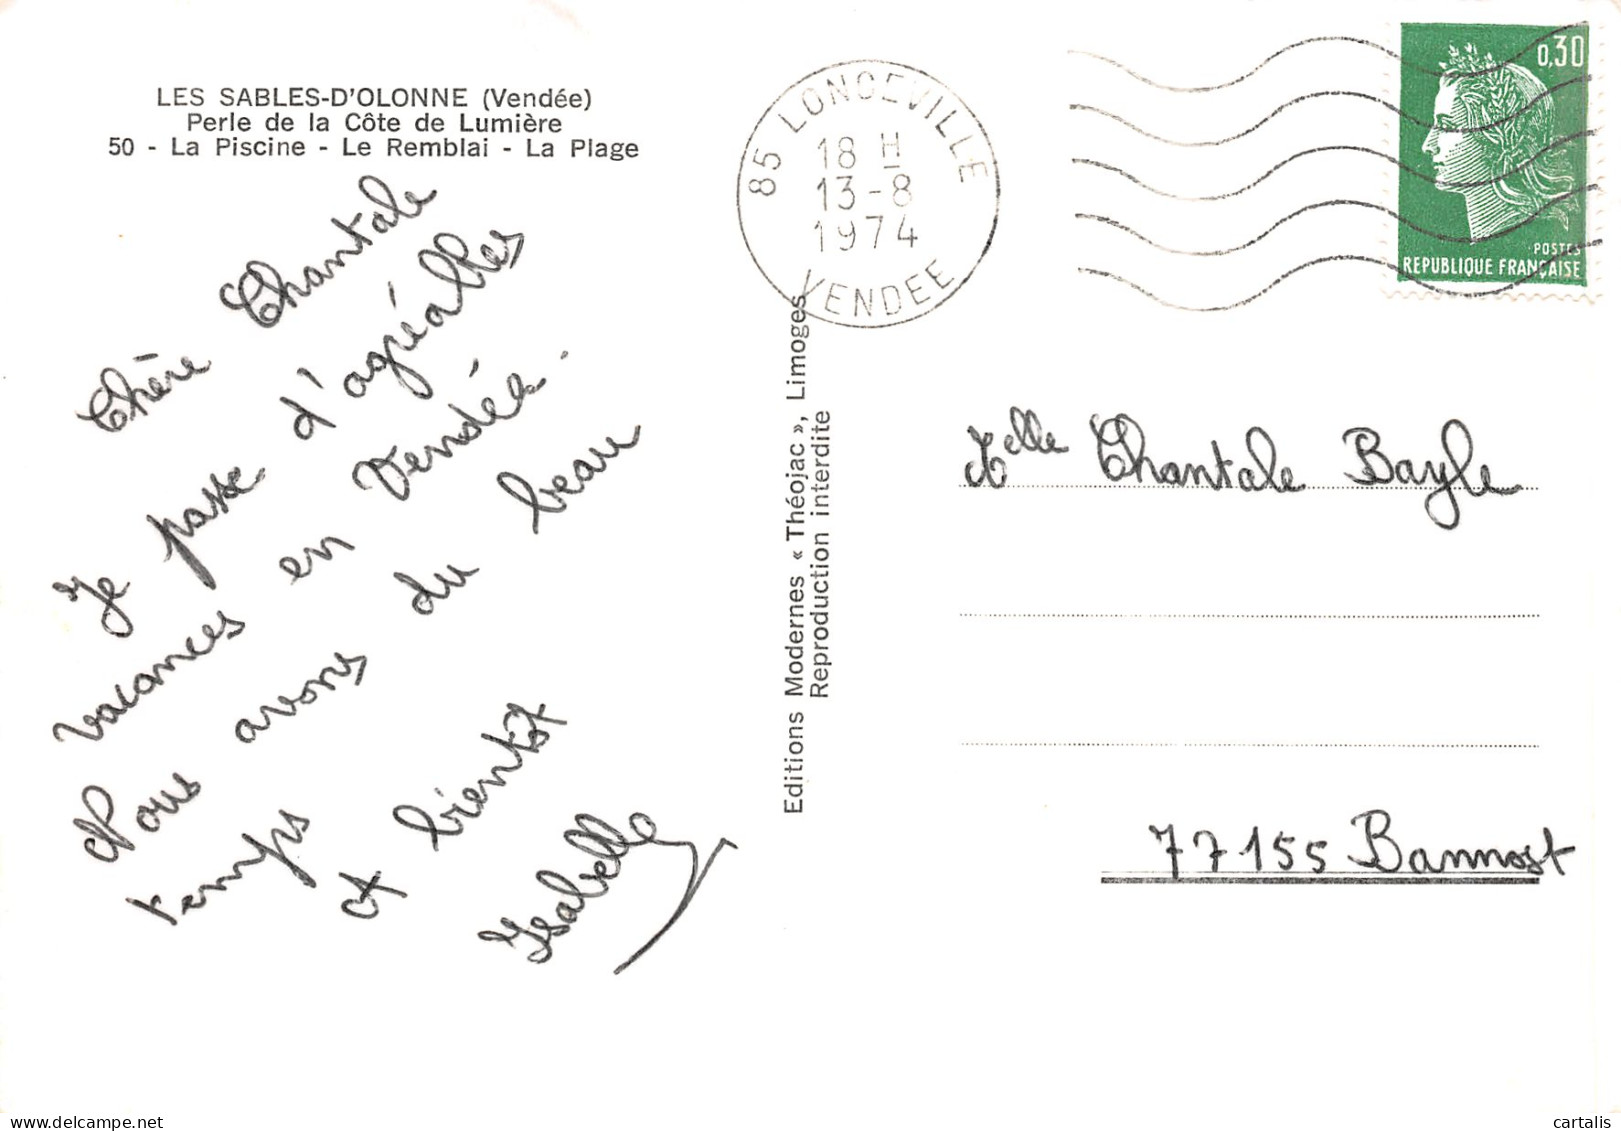 LES SABLES-D'OLONNE (Vendée)
Perle de la Côte de Lumière
50 - La Piscine - Le Remblai - La Plage
Chère Chantale
Je passe d'agréables
vacances en Vendée.
Nous avons du beau
temps
A bientôt
Isabelle
Editions Modernes « Théojac », Limoges
Reproduction interdite
85 LONGEVILLE
18 H
13-8
1974
VENDEE
0,30
POSTES
REPUBLIQUE FRANÇAISE
Melle Chantale Bayle
77155 Bannost
delcampe.net
cartalis